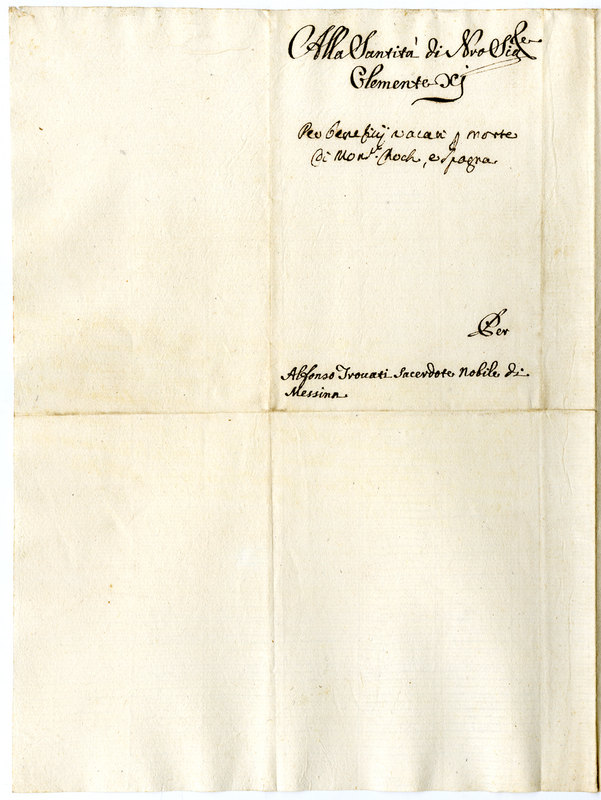 Alla Santità di Nro Sigre
Clemente XI
Per benefizij vacati p morte
di Monr. Roch, e Spagna
Per
Alfonso Trovati Sacerdote Nobile di
Messina